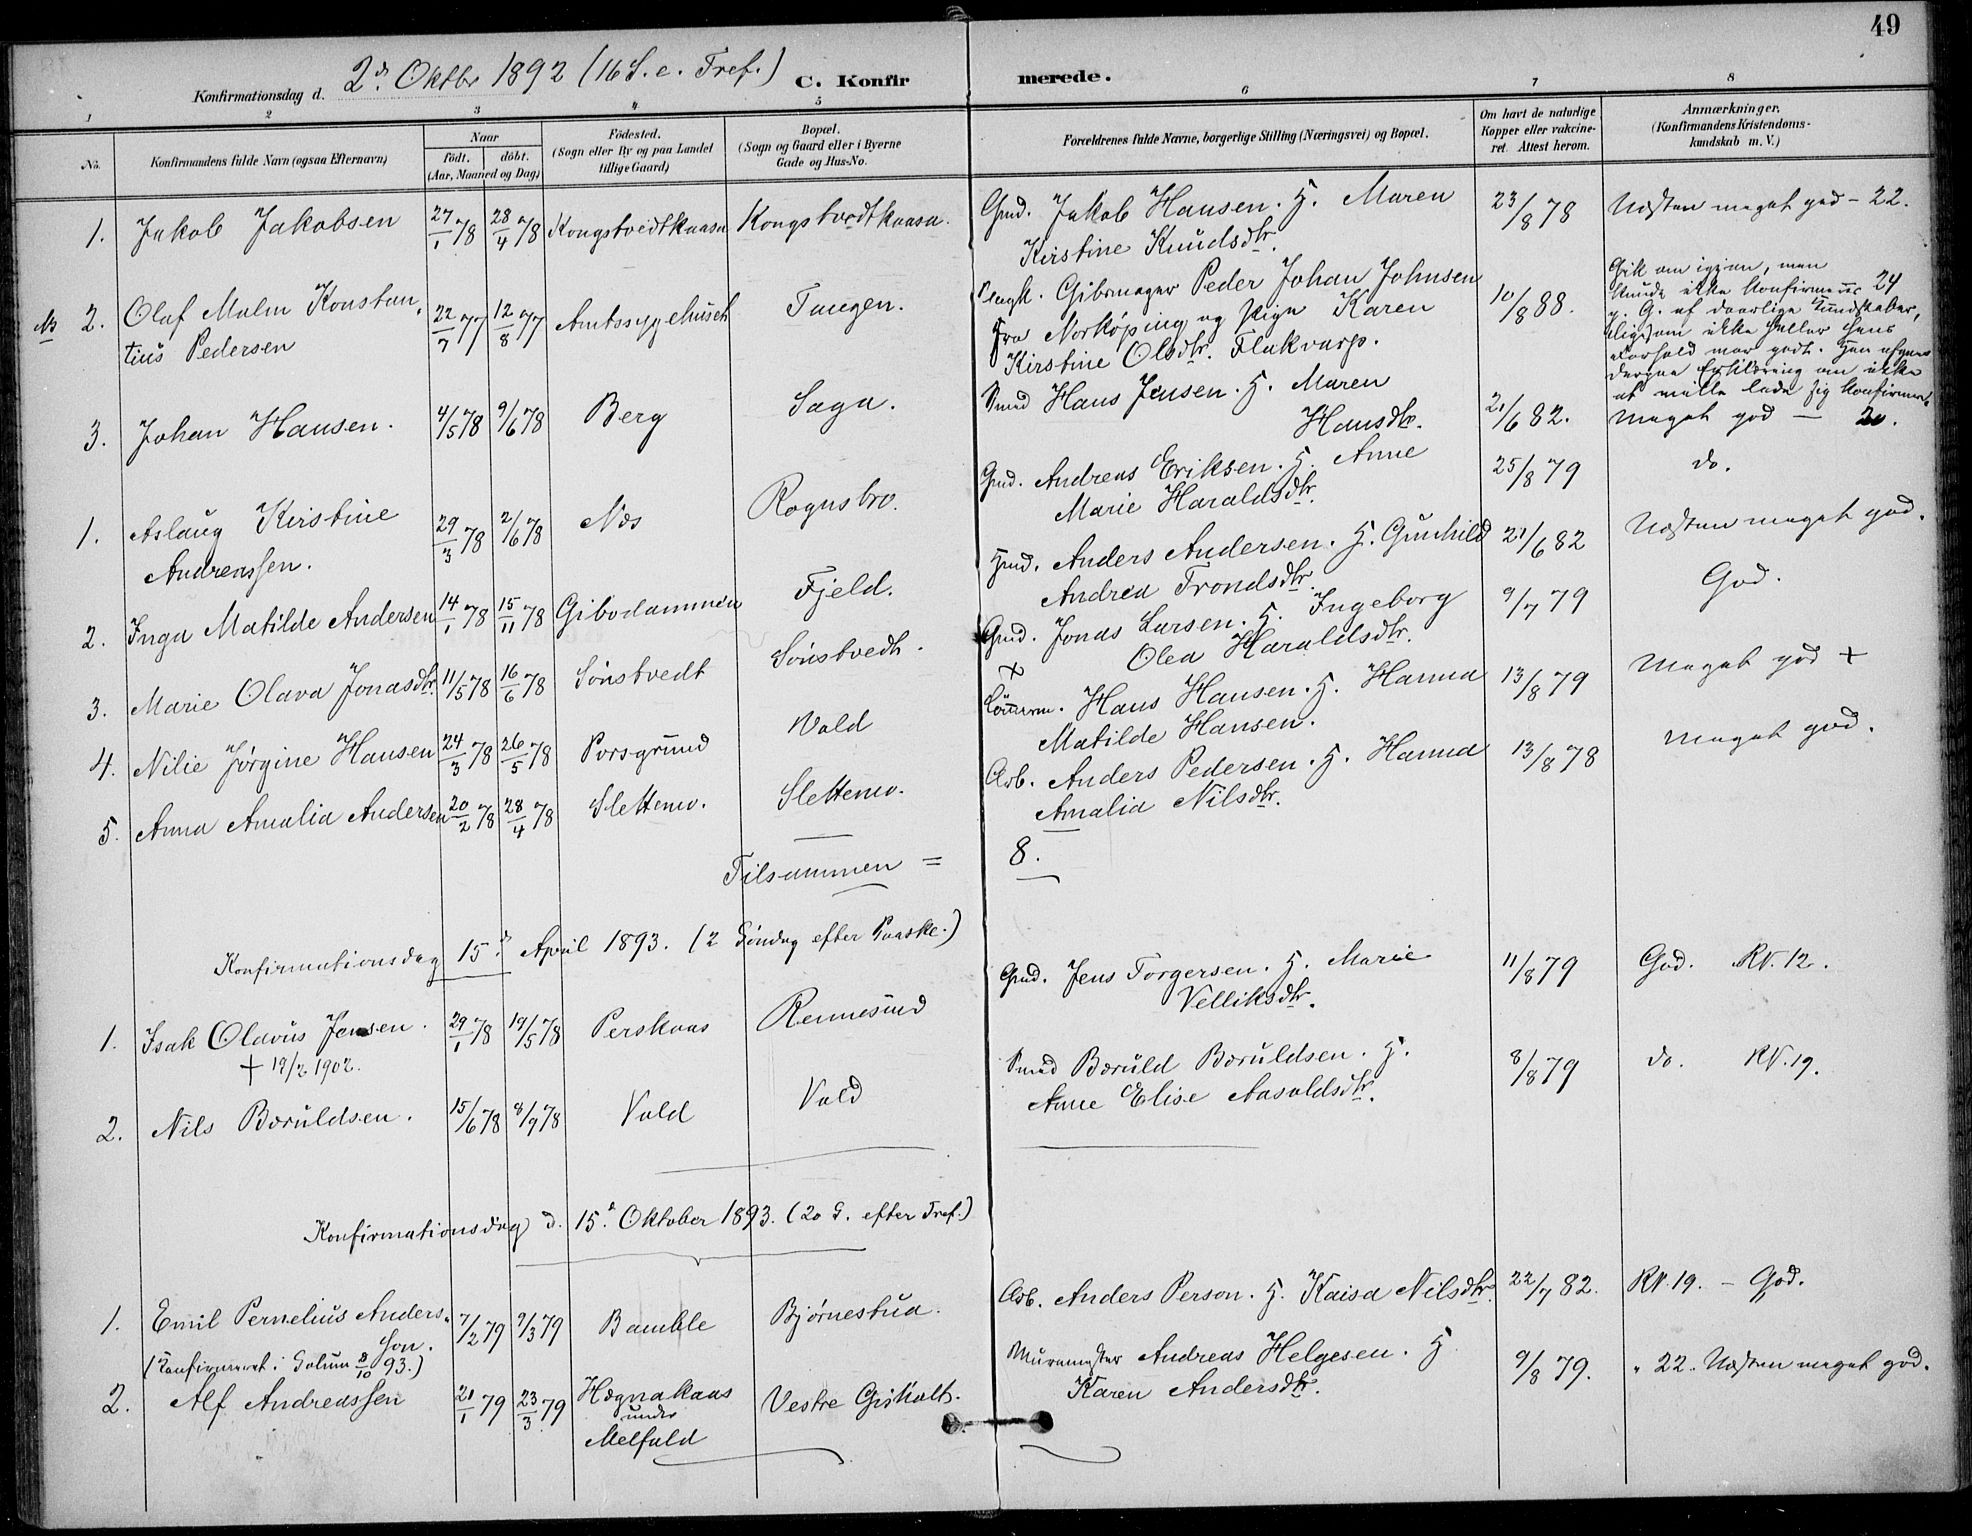 49
Konfirmationsdag d. 2d Oktbr 1892 (16 S. e. Tref.) C. Konfirmerede.
1 2 3 4 5 6 7 8
No. Konfirmandens fulde Navn (ogsaa Efternavn) Naar født. døbt. (Aar, Maaned og Dag) Fødested. (Sogn eller By og paa Landet tillige Gaard) Bopæl. (Sogn og Gaard eller i Byerne Gade og Hus-No. Forældrenes fulde Navne, borgerlige Stilling (Næringsvei) og Bopæl. Om havt de naturlige Kopper eller vakcineret. Attest herom. Anmærkninger. (Konfirmandens Kristendomskundskab m. V.)
1. Jakob Jakobsen 27/1 78 28/4 78 Kongstvedtkaasa Kongstvedtkaasa. Gmd. Jakob Hansen. H. Maren 23/8 78 Næsten meget god – 22.
Kirstine Knudsdtr.
2. Olaf Malm Konstan- 22/7 77 12/8 77 Amtssygehuset Tangen. Gibsmager Peder Johan Johnsen 10/8 88. Gik om igjen, men
tius Pedersen fra Norkøping og Pige Karen kunde ikke konfirmeres 24
Kirstine Olsdtr. Flakvarp. p. G. af daarlige Kundskaber,
ligesom ikke heller hans
Forhold var godt. Han afgav
derpaa Erklæring om ikke
at ville lade sig konfirmere.
3. Johan Hansen. 4/5 78 9/6 78 Berg Saga. Smed Hans Jensen. H. Maren 21/6 82. Meget god — 20.
Hansdtr.
1. Aslaug Kirstine 29/3 78 2/6 78 Næs Rognsbro. Gmd. Andreas Eriksen. H. Anne 25/8 79 do.
Andreassen. Marie Haraldsdtr.
2. Inga Matilde Andersen 14/1 78 15/11 78 Gibodammen Fjeld. Hmd. Anders Andersen. H. Gunhild 21/6 82 Næsten meget god.
Andrea Trondsdtr.
3. Marie Olava Jonasdtr. 11/5 78 16/6 78 Sønstvedt Sønstvedt. Gmd. Jonas Larsen. H. Ingeborg 9/7 79 God.
+ Olea Haraldsdtr.
4. Nilie Jørgine Hansen 24/3 78 26/5 78 Porsgrund Vald Hans Hansen. H. Hanna 13/8 79 Meget god +
Matilde Hansen.
5. Anna Amalia Andersen 20/2 78 28/4 78 Slettemo. Slettemo. Arb. Anders Pedersen. H. Hanna 13/8 78 Meget god.
Amalia Nilsdtr.
Tilsammen = 8.
Konfirmationsdag 15d April 1893. (2 Søndag efter Paaske.)
1. Isak Olavus Jensen. 29/1 78 19/5 78 Perskaas Rennesund Gmd. Jens Torgersen. H. Marie 11/8 79 God. RV. 12.
+ 19/2 1902. Velliksdtr.
2. Nils Bæruldsen. 15/6 78 8/9 78 Vald Vald Smed Bæruld Bæruldsen. H. 8/8 79 do. RV. 19.
Anne Elise Aasoldsdtr.
Konfirmationsdag d. 15d Oktober 1893. (20 S. efter Tref.)
1. Emil Pernelius Anders- 7/2 79 9/3 79 Bamble Bjørnestua. Arb. Anders Person. H. Kaisa Nilsdtr. 22/7 82. RV. 19. – God.
son.
(Konfirmeret i Solum 8/10 93.)
2. Alf Andreassen 21/1 79 23/3 79 Hægnakaas Vestre Grskalt. Muremester Andreas Helgesen. H 9/8 79. " 22. Næsten meget god.
under Karen Andersdtr.
Melfald